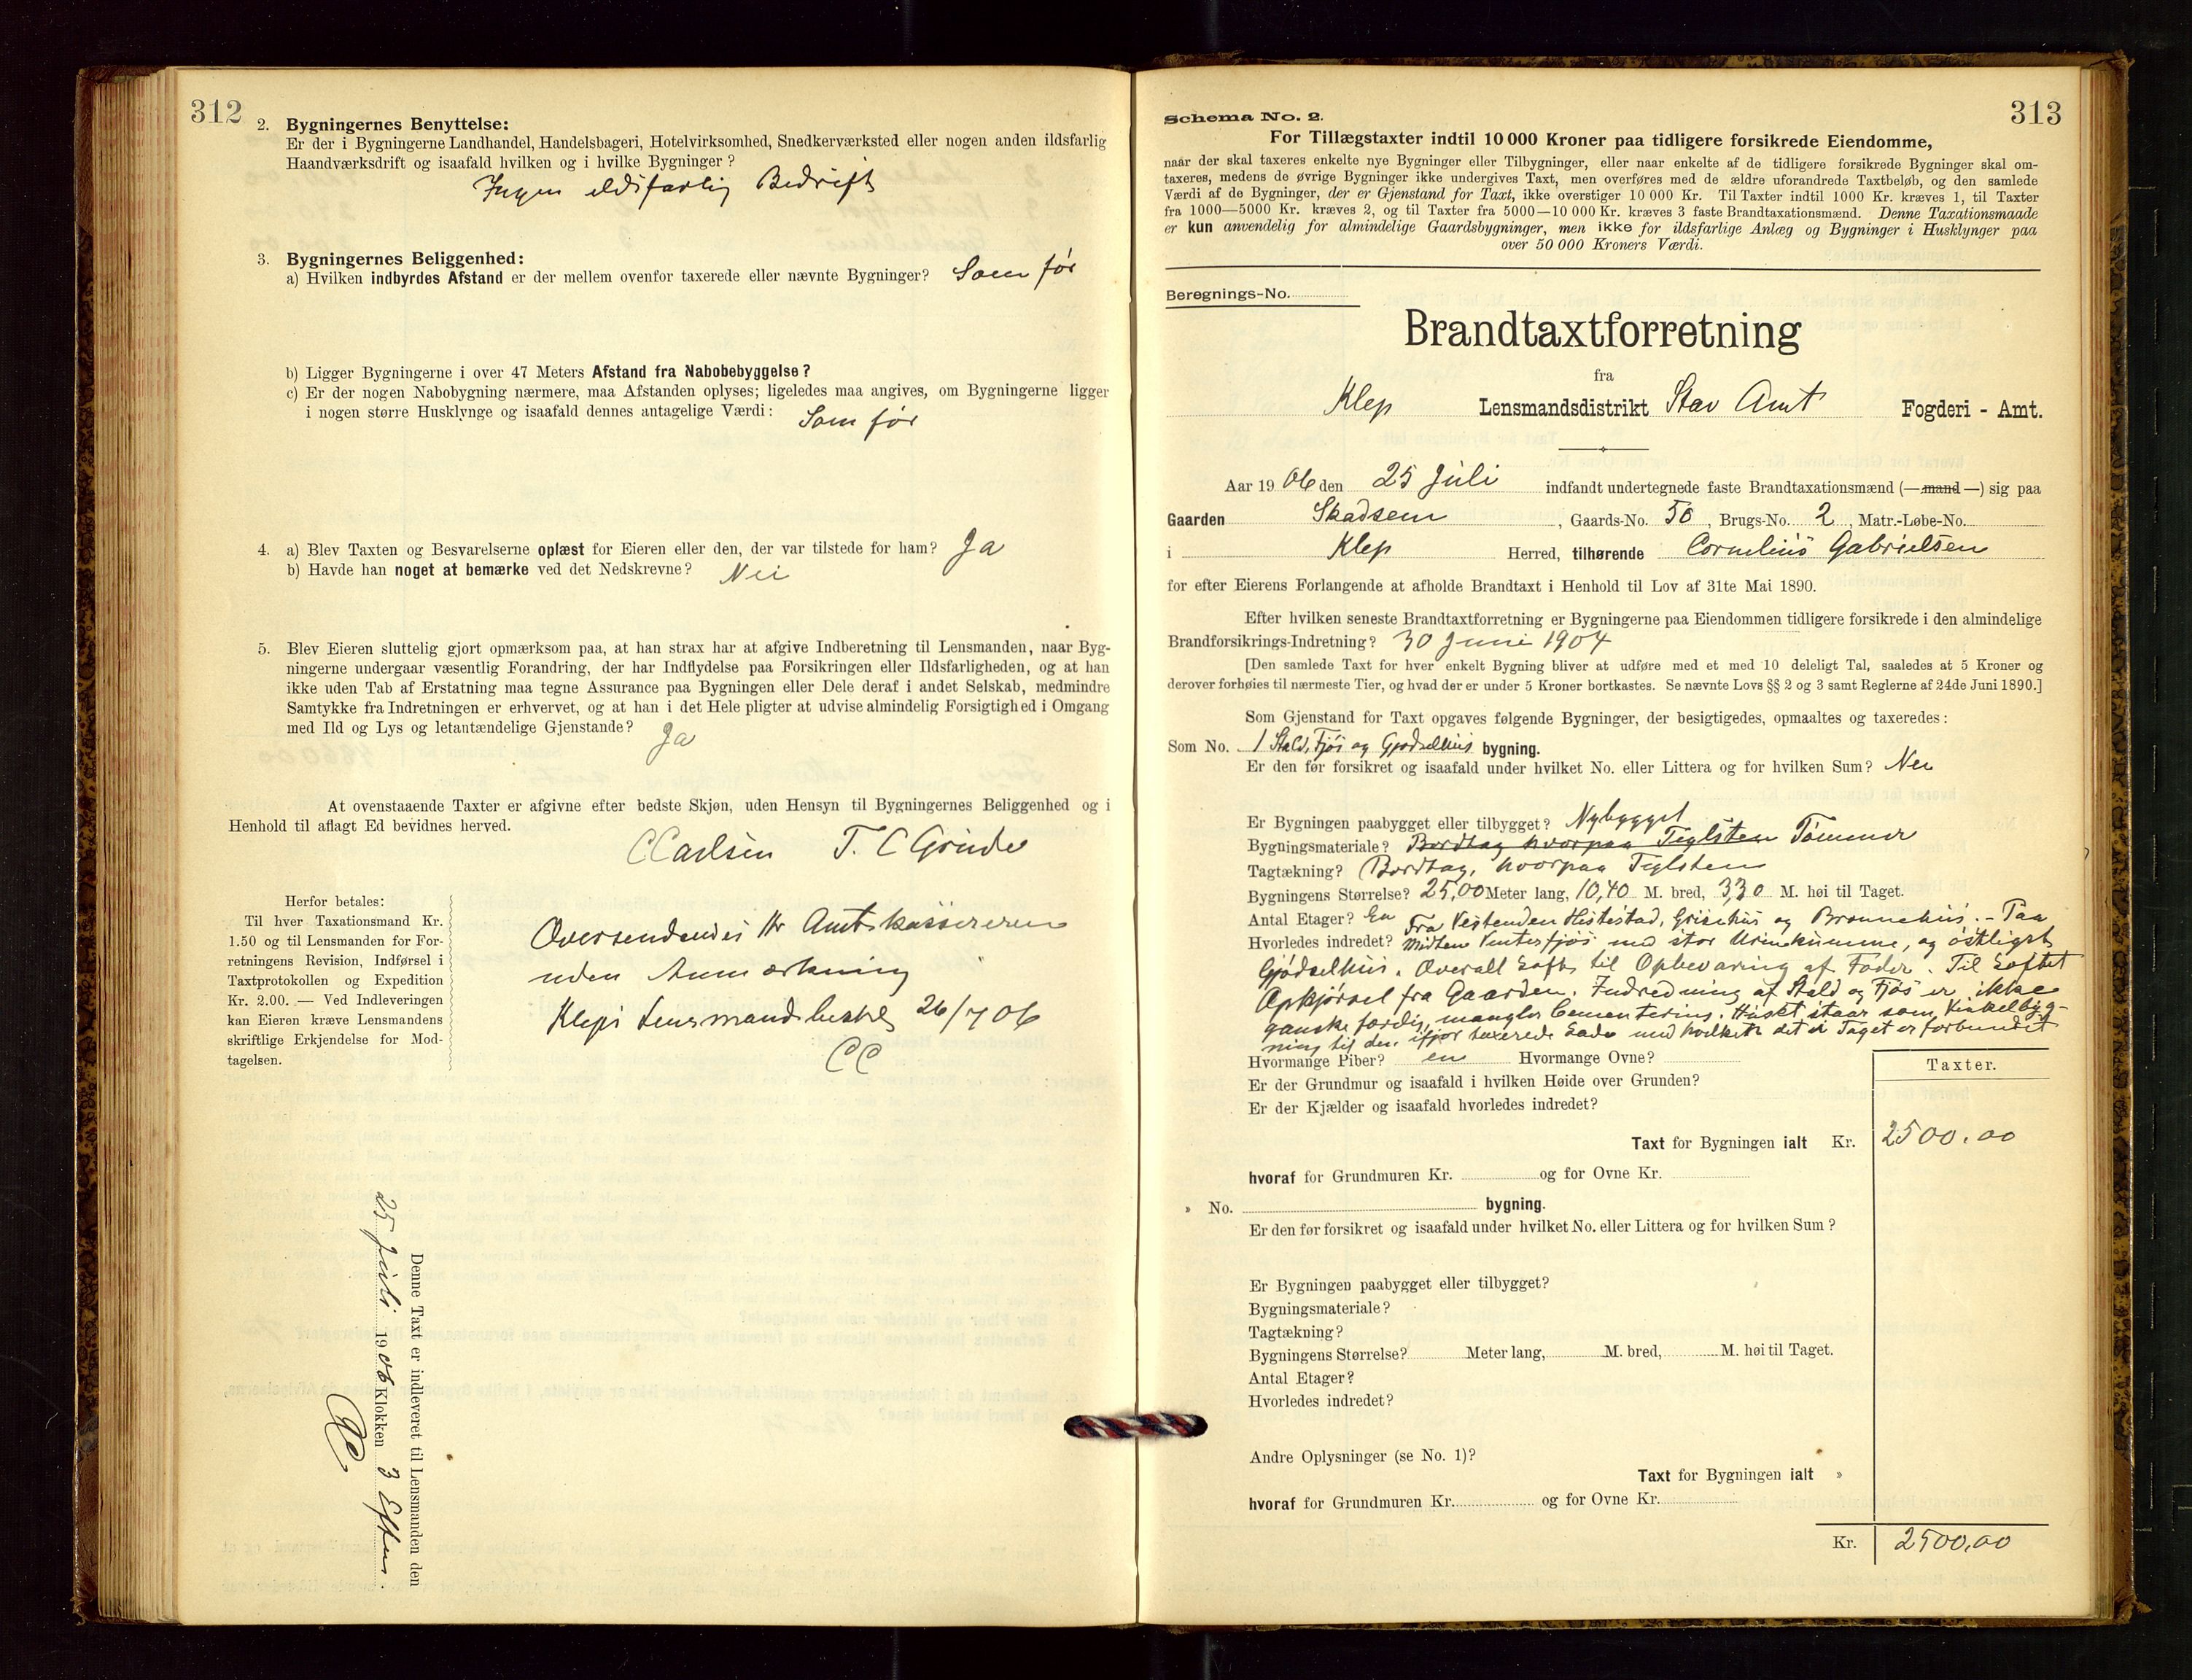 312
2. Bygningernes Benyttelse:
Er der i Bygningerne Landhandel, Handelsbageri, Hotelvirksomhed, Snedkerværksted eller nogen anden ildsfarlig
Haandværksdrift og isaafald hvilken og i hvilke Bygninger?
Ingen ildsfarlig Bedrift
3. Bygningernes Beliggenhed:
a) Hvilken indbyrdes Afstand er der mellem ovenfor taxerede eller nævnte Bygninger? Som før
b) Ligger Bygningerne i over 47 Meters Afstand fra Nabobebyggelse?
c) Er der nogen Nabobygning nærmere, maa Afstanden oplyses; ligeledes maa angives, om Bygningerne ligger
i nogen større Husklynge og isaafald dennes antagelige Værdi: Som før
4. a) Blev Taxten og Besvarelserne oplæst for Eieren eller den, der var tilstede for ham? Ja
b) Havde han noget at bemærke ved det Nedskrevne? Nei
5. Blev Eieren sluttelig gjort opmærksom paa, at han strax har at afgive Indberetning til Lensmanden, naar Byg-
ningerne undergaar væsentlig Forandring, der har Indflydelse paa Forsikringen eller Ildsfarligheden, og at han
ikke uden Tab af Erstatning maa tegne Assurance paa Bygningen eller Dele deraf i andet Selskab, medmindre
Samtykke fra Indretningen er erhvervet, og at han i det Hele pligter at udvise almindelig Forsigtighed i Omgang
med Ild og Lys og letantændelige Gjenstande? Ja
At ovenstaaende Taxter er afgivne efter bedste Skjøn, uden Hensyn til Bygningernes Beliggenhed og i
Henhold til aflagt Ed bevidnes herved.
C Carlsen T. C Grude
Herfor betales:
Til hver Taxationsmand Kr.
1.50 og til Lensmanden for For-
retningens Revision, Indførsel i
Taxtprotokollen og Expedition
Kr. 2.00. — Ved Indleveringen
kan Eieren kræve Lensmandens
skriftlige Erkjendelse for Mod-
tagelsen.
Oversendes Hr Amtskassereren
uden Anmærkning
Klepi Lensmandsbestil 26/7 06
CC
Denne Taxt er indleveret til Lensmanden den
25 Juli 1906 Klokken 3 Efterm
CC
313
Schema No. 2.
For Tillægstaxter indtil 10 000 Kroner paa tidligere forsikrede Eiendomme,
naar der skal taxeres enkelte nye Bygninger eller Tilbygninger, eller naar enkelte af de tidligere forsikrede Bygninger skal om-
taxeres, medens de øvrige Bygninger ikke undergives Taxt, men overføres med de ældre uforandrede Taxtbeløb, og den samlede
Værdi af de Bygninger, der er Gjenstand for Taxt, ikke overstiger 10 000 Kr. Til Taxter indtil 1000 Kr. kræves 1, til Taxter
fra 1000—5000 Kr. kræves 2, og til Taxter fra 5000—10 000 Kr. kræves 3 faste Brandtaxationsmænd. Denne Taxationsmaade
er kun anvendelig for almindelige Gaardsbygninger, men ikke for ildsfarlige Anlæg og Bygninger i Husklynger paa
over 50 000 Kroners Værdi.
Beregnings-No.
Brandtaxtforretning
fra
Klep Lensmandsdistrikt Stav Amt Fogderi - Amt.
Aar 1906 den 25 Juli indfandt undertegnede faste Brandtaxationsmænd (—mand—) sig paa
Gaarden Skadsem, Gaards-No. 50, Brugs-No. 2, Matr.-Løbe-No.
i Klep Herred, tilhørende Cornelius Gabrielsen
for efter Eierens Forlangende at afholde Brandtaxt i Henhold til Lov af 31te Mai 1890.
Efter hvilken seneste Brandtaxtforretning er Bygningerne paa Eiendommen tidligere forsikrede i den almindelige
Brandforsikrings-Indretning? 30 Juni 1904
[Den samlede Taxt for hver enkelt Bygning bliver at udføre med et med 10 deleligt Tal, saaledes at 5 Kroner og
derover forhøies til nærmeste Tier, og hvad der er under 5 Kroner bortkastes. Se nævnte Lovs §§ 2 og 3 samt Reglerne af 24de Juni 1890.]
Som Gjenstand for Taxt opgaves følgende Bygninger, der besigtigedes, opmaaltes og taxeredes:
Som No. 1 Stald, Fjøs og Gjødselhus bygning.
Er den før forsikret og isaafald under hvilket No. eller Littera og for hvilken Sum? Nei
Er Bygningen paabygget eller tilbygget? Nybygget
Bygningsmateriale? Bordtag hvorpaa Teglsten Tømmer
Tagtækning? Bordtag, hvorpaa Teglsten
Bygningens Størrelse? 25,00 Meter lang, 10,40 M. bred, 3,30 M. høi til Taget.
Antal Etager? En Fra Vestenden Hestestad, Grisehus og Brønnehus. - Paa
Hvorledes indredet? Midten Vinterfjøs med stor Urinkumme, og østligst
Gjødselhus. Overalt Lofts til Opbevaring af Foder. Til Loftet
Opkjørsel fra Gaarden. Indredning af Stald og Fjøs er ikke
ganske færdig, mangler Cementering. Huset staar som Vinkelbyg-
ning til den ifjor taxerede Lade med hvilken det i Taget er forbundet
Hvormange Piber? en Hvormange Ovne?
Er der Grundmur og isaafald i hvilken Høide over Grunden?
Er der Kjælder og isaafald hvorledes indredet?
Taxter.
Taxt for Bygningen ialt Kr. 2500.00
hvoraf for Grundmuren Kr. og for Ovne Kr.
» No. bygning.
Er den før forsikret og isaafald under hvilket No. eller Littera og for hvilken Sum?
Er Bygningen paabygget eller tilbygget?
Bygningsmateriale?
Tagtækning?
Bygningens Størrelse? Meter lang, M. bred, M. høi til Taget.
Antal Etager?
Hvorledes indredet?
Andre Oplysninger (se No. 1)?
Taxt for Bygningen ialt »
hvoraf for Grundmuren Kr. og for Ovne Kr.
Kr. 2500,00